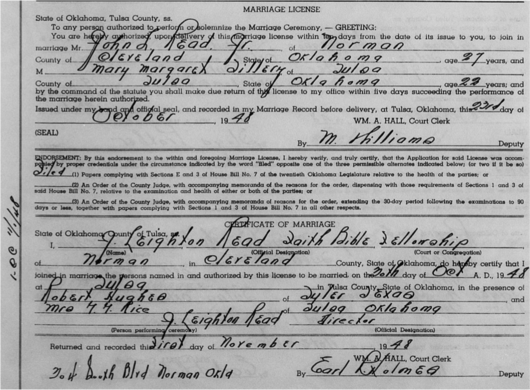 MARRIAGE LICENSE
State of Oklahoma, Tulsa County, ss.
To any person authorized to perform or solemnize the Marriage Ceremony, — GREETING:
You are hereby authorized upon delivery of this marriage license within ten days from the date of its issue to you, to join in
marriage Mr. John L. Read Jr. of Norman
County of Cleveland State of Oklahoma age 27 years, and
M Mary Margaret Dillery of Tulsa
County of Tulsa State of Oklahoma age 22 years; and
by the command of the statute you shall make due return of this license to my office within five days succeeding the performance of
the marriage herein authorized.
Issued under my hand and official seal, and recorded in my Marriage Record before delivery, at Tulsa, Oklahoma, this 23rd day of
October 1948 WM. A. HALL, Court Clerk
(SEAL) By M. Williams Deputy
ENDORSEMENT: By this endorsement to the within and foregoing Marriage License, I hereby verify, and truly certify, that the Application for said License was accom-
panied by proper credentials under the circumstance indicated by the word "filed" opposite one of the three permissible alternatives indicated below; (or two if it be so)
filed (1) Papers complying with Sections E and 3 of House Bill No. 7 of the twentieth Oklahoma Legislature relative to the health of the parties; or
(2) An Order of the County Judge, with accompanying memoranda of the reasons for the order, dispensing with those requirements of Sections 1 and 3 of
said House Bill No. 7, relative to the examination and health of either or both of the parties; or
(3) An Order of the County Judge, with accompanying memoranda of reasons for the order, extending the 30-day period following the examinations to 90
days or less, together with papers complying with Sections 1 and 3 of House Bill No. 7 in all other respects.
CERTIFICATE OF MARRIAGE
State of Oklahoma, County of Tulsa, ss.
I, J. Leighton Read Faith Bible Fellowship
(Name) (Official Designation) (Court or Congregation)
of Norman in Cleveland County, State of Oklahoma, do hereby certify that I
joined in marriage the persons named in and authorized by this license to be married on the 30th day of Oct A. D., 1948
at Tulsa in Tulsa County, State of Oklahoma, in the presence of
Robert Hughes of Tyler Texas and
Mrs Rice of Tulsa Oklahoma
J Leighton Read Director
(Person performing ceremony) (Official Designation)
Returned and recorded this first day of November 1948
WM. A. HALL, Court Clerk
Booth Blvd Norman Okla By Earl Holmes Deputy